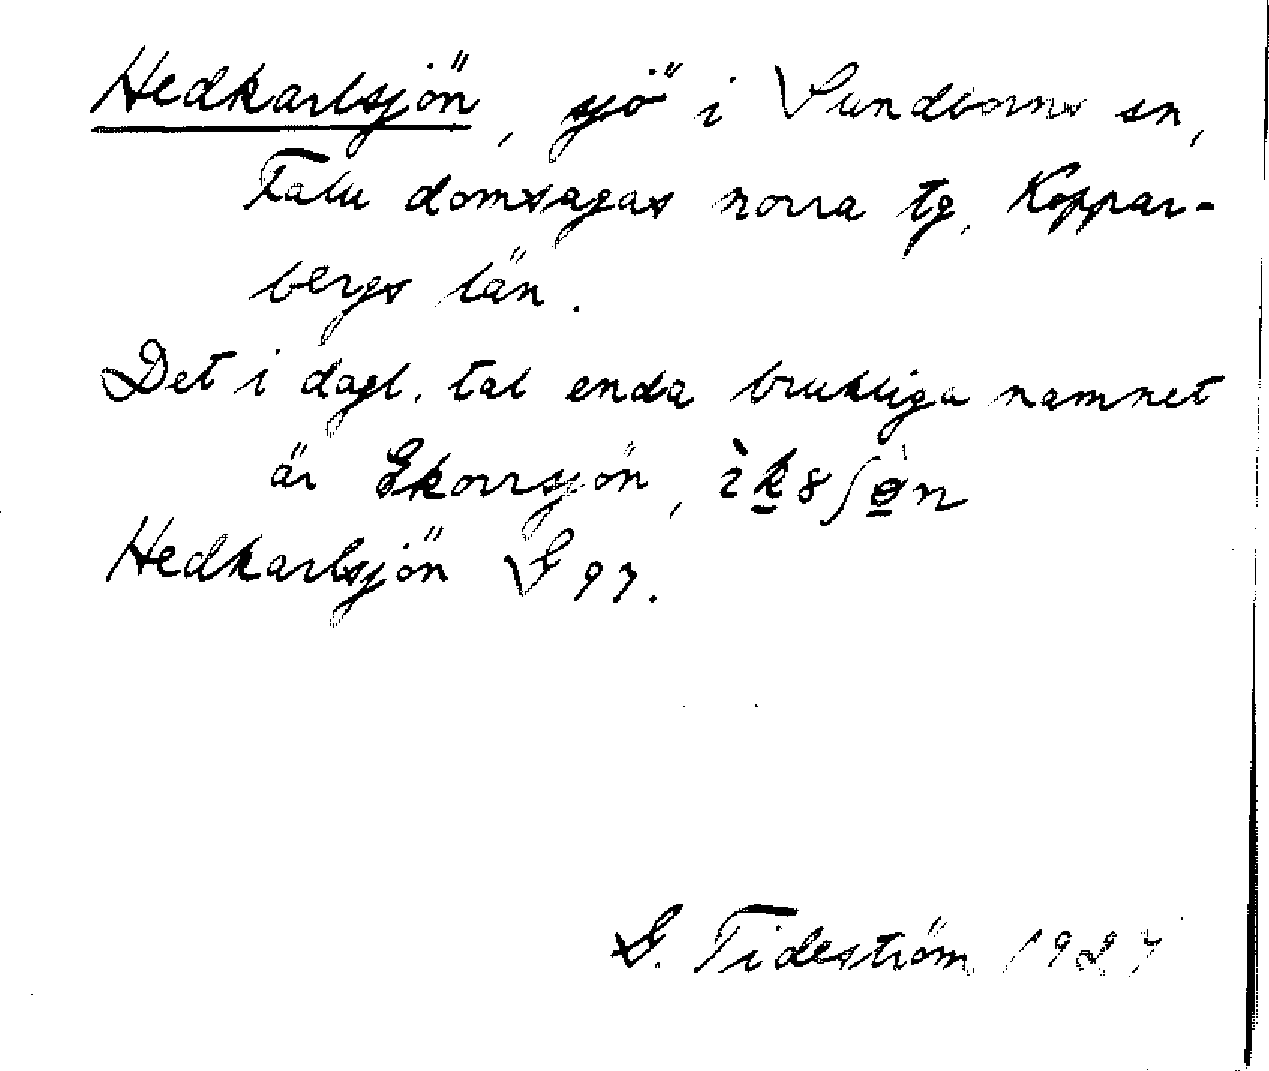 Hedkarlsjön, sjö i Sundborns sn,
Falu domsagas norra tg, Koppar-
bergs län.
Det i dagl. tal enda brukliga namnet
är Ekorrsjön,
Hedkarlsjön S 97.
G. Tideström 1927